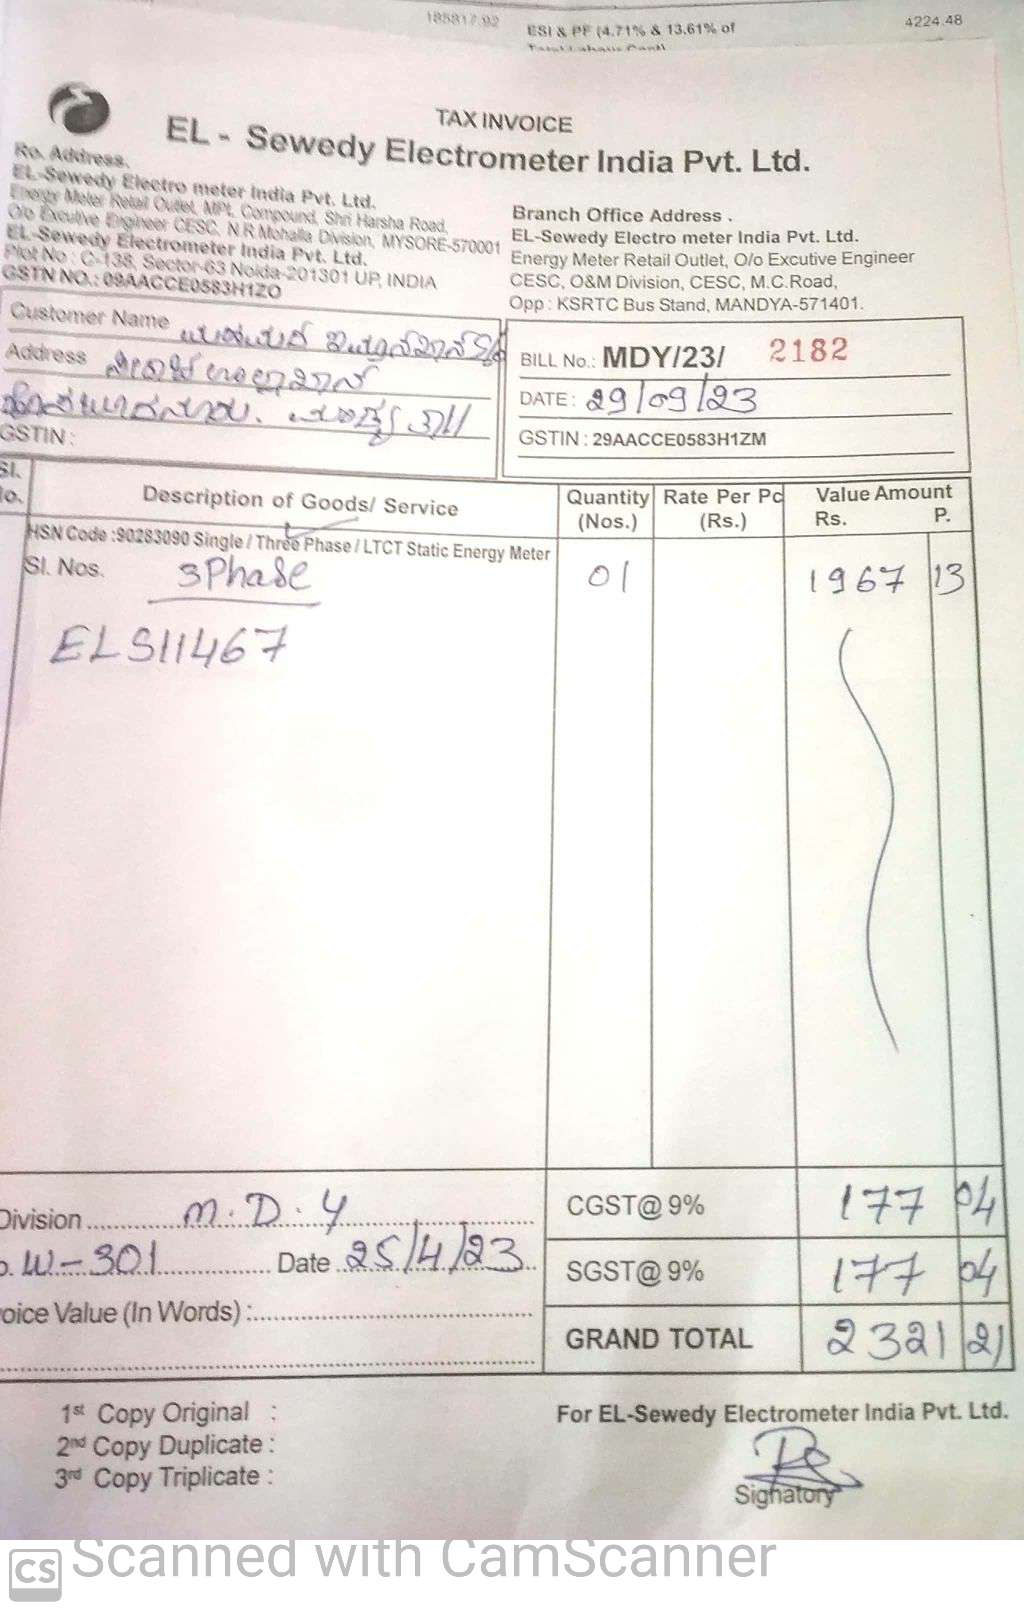 185817.92
ESI & PF (4.71% & 13.61% of
4224.48
TAX INVOICE
EL - Sewedy Electrometer India Pvt. Ltd.
Ro. Address.
EL-Sewedy Electro meter India Pvt. Ltd.
Energy Meter Retail Outlet, MPL Compound, Shri Harsha Road,
O/o Excutive Engineer CESC, N.R Mohalla Division, MYSORE-570001
EL-Sewedy Electrometer India Pvt. Ltd.
Plot No : C-138, Sector-63 Noida-201301 UP, INDIA
GSTN NO.: 09AACCE0583H1ZO
Branch Office Address .
EL-Sewedy Electro meter India Pvt. Ltd.
Energy Meter Retail Outlet, O/o Excutive Engineer
CESC, O&M Division, CESC, M.C.Road,
Opp : KSRTC Bus Stand, MANDYA-571401.
Customer Name
Address
GSTIN :
BILL No.: MDY/23/ 2182
DATE : 29/09/23
GSTIN : 29AACCE0583H1ZM
Sl. No. Description of Goods/ Service Quantity (Nos.) Rate Per Pc (Rs.) Value Amount Rs. P.
HSN Code :90283090 Single / Three Phase / LTCT Static Energy Meter
Sl. Nos. 3Phase 01 1967 13
ELS11467
Division M.D.Y CGST@ 9% 177 04
o. W-301 Date 25/4/23 SGST@ 9% 177 04
oice Value (In Words) : GRAND TOTAL 2321 21
1st Copy Original :
2nd Copy Duplicate :
3rd Copy Triplicate :
For EL-Sewedy Electrometer India Pvt. Ltd.
Sighatory
CS Scanned with CamScanner